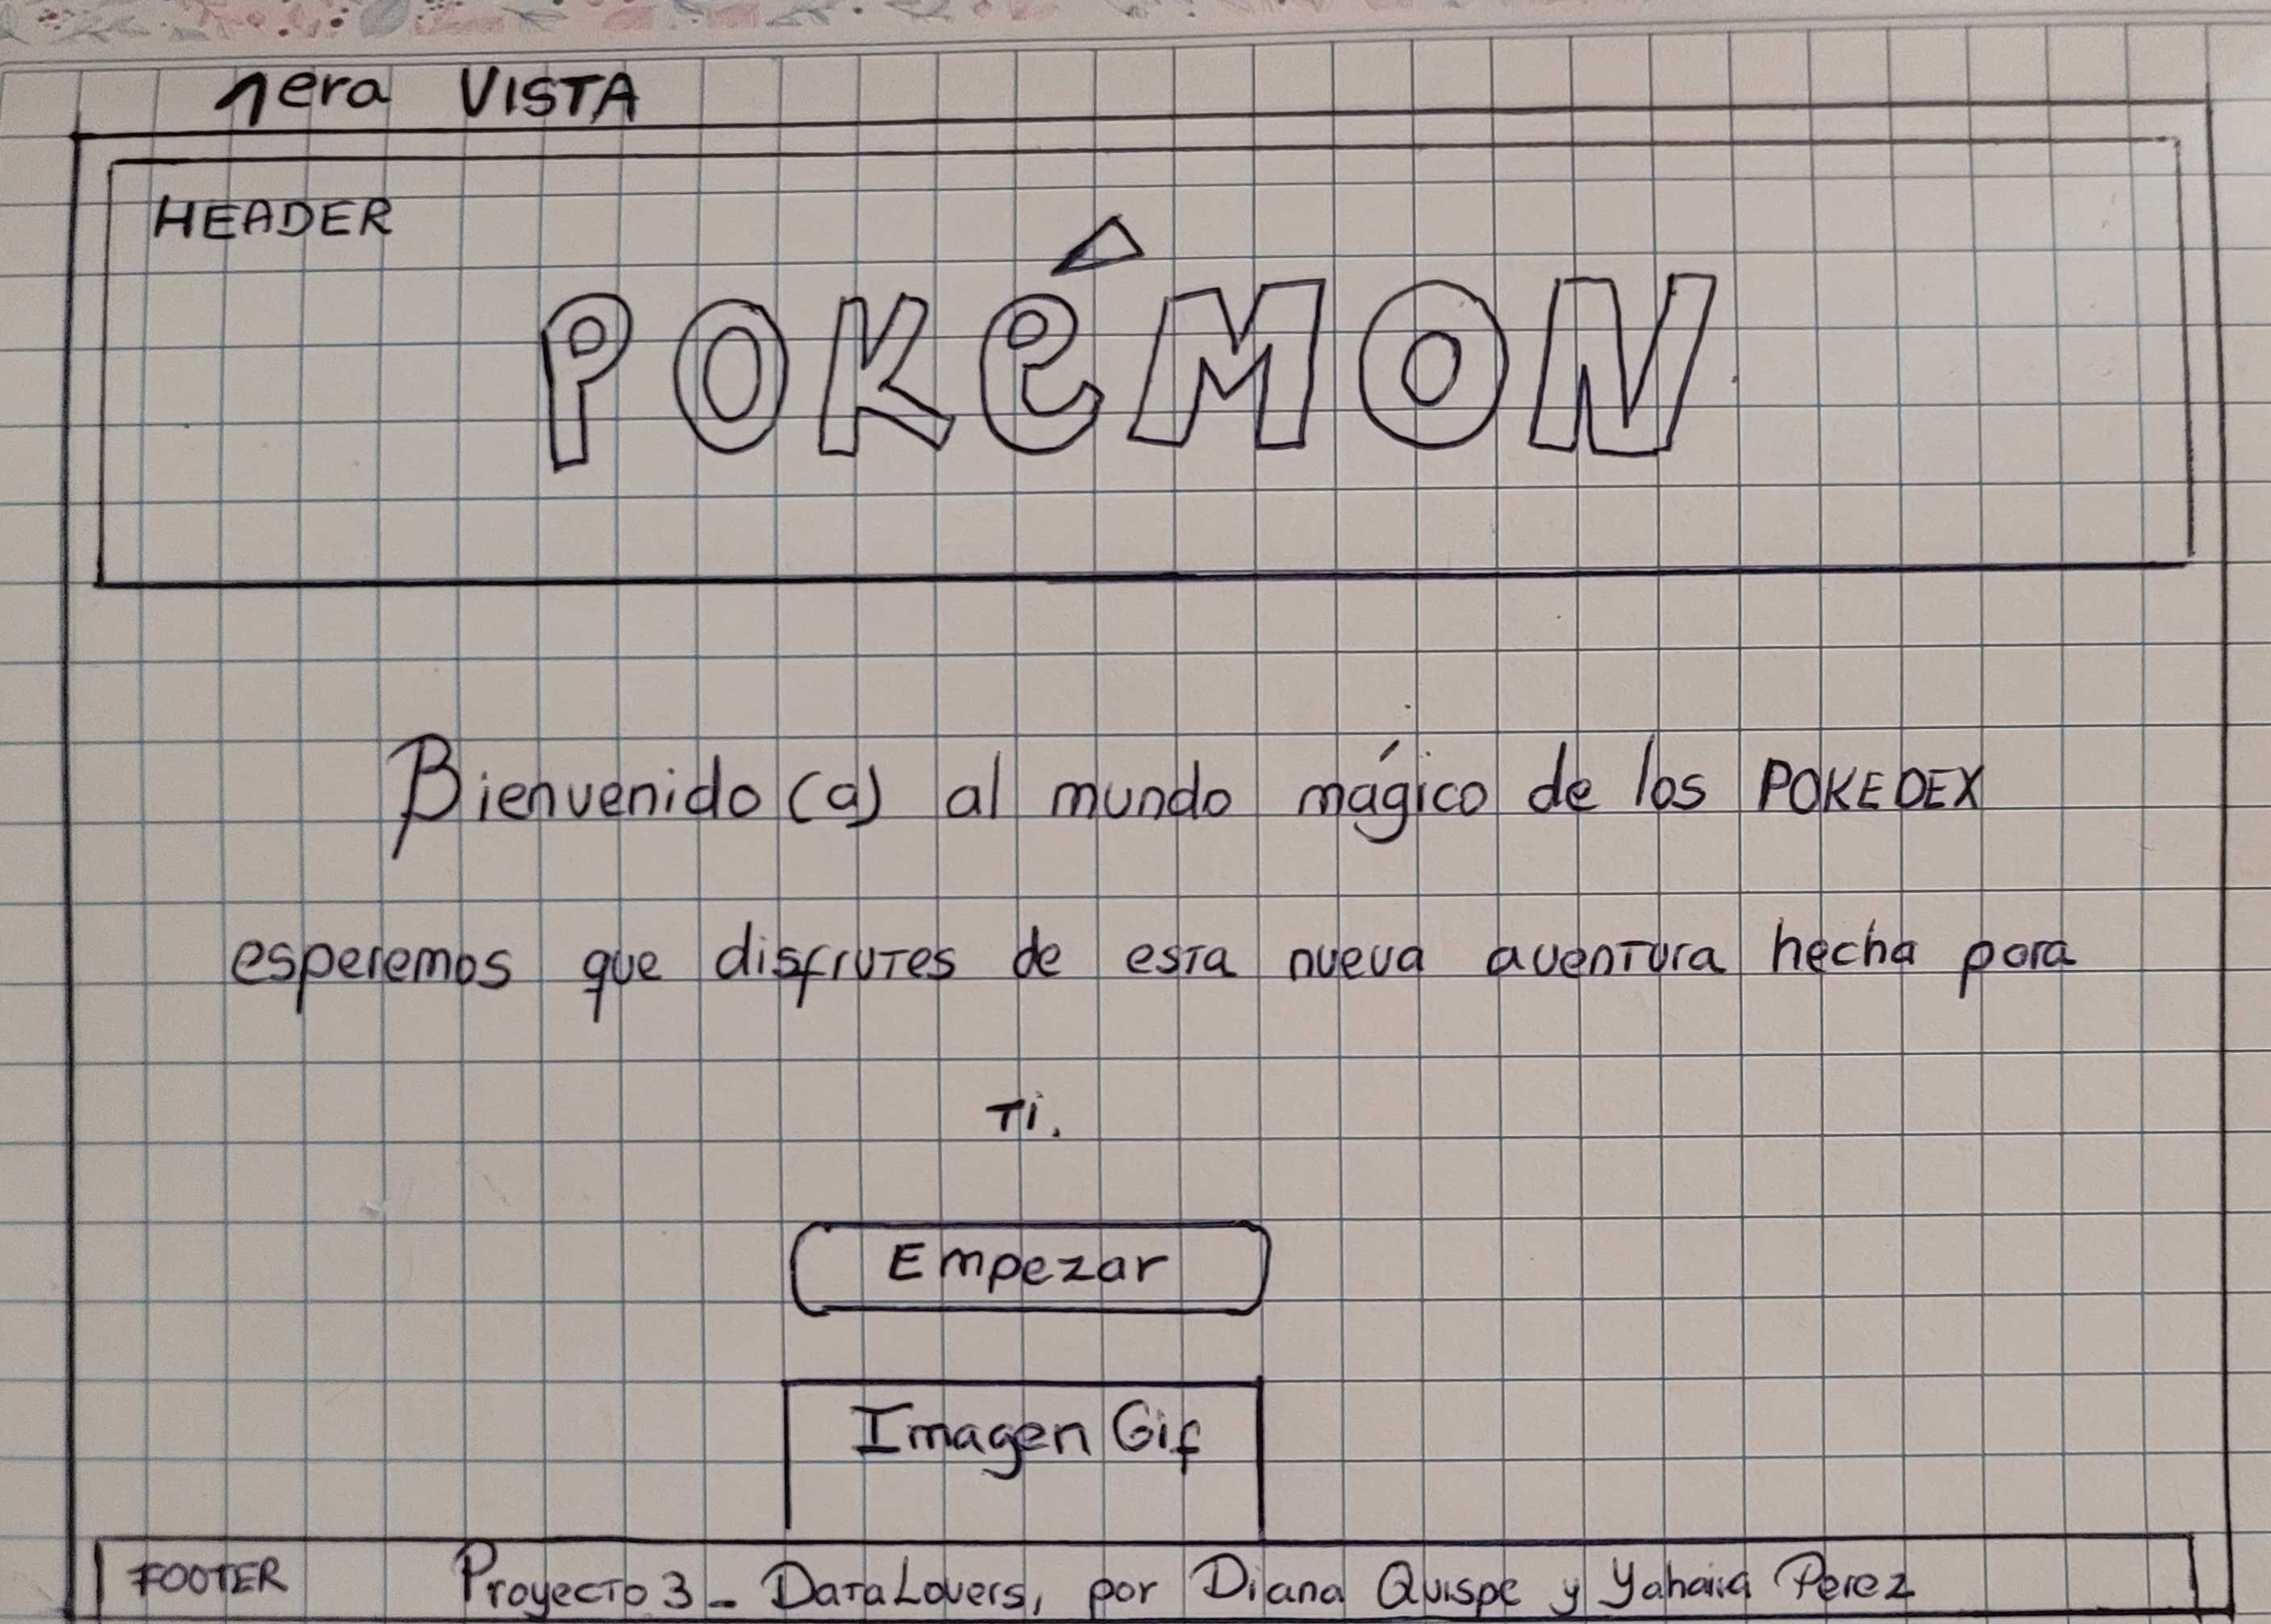 1era VISTA
HEADER
POKéMON
Bienvenido (a) al mundo mágico de los POKEDEX
esperemos que disfrutes de esta nueva aventura hecha para
Ti.
Empezar
Imagen Gif
FOOTER Proyecto 3 - DataLovers, por Diana Quispe y Yahaira Perez